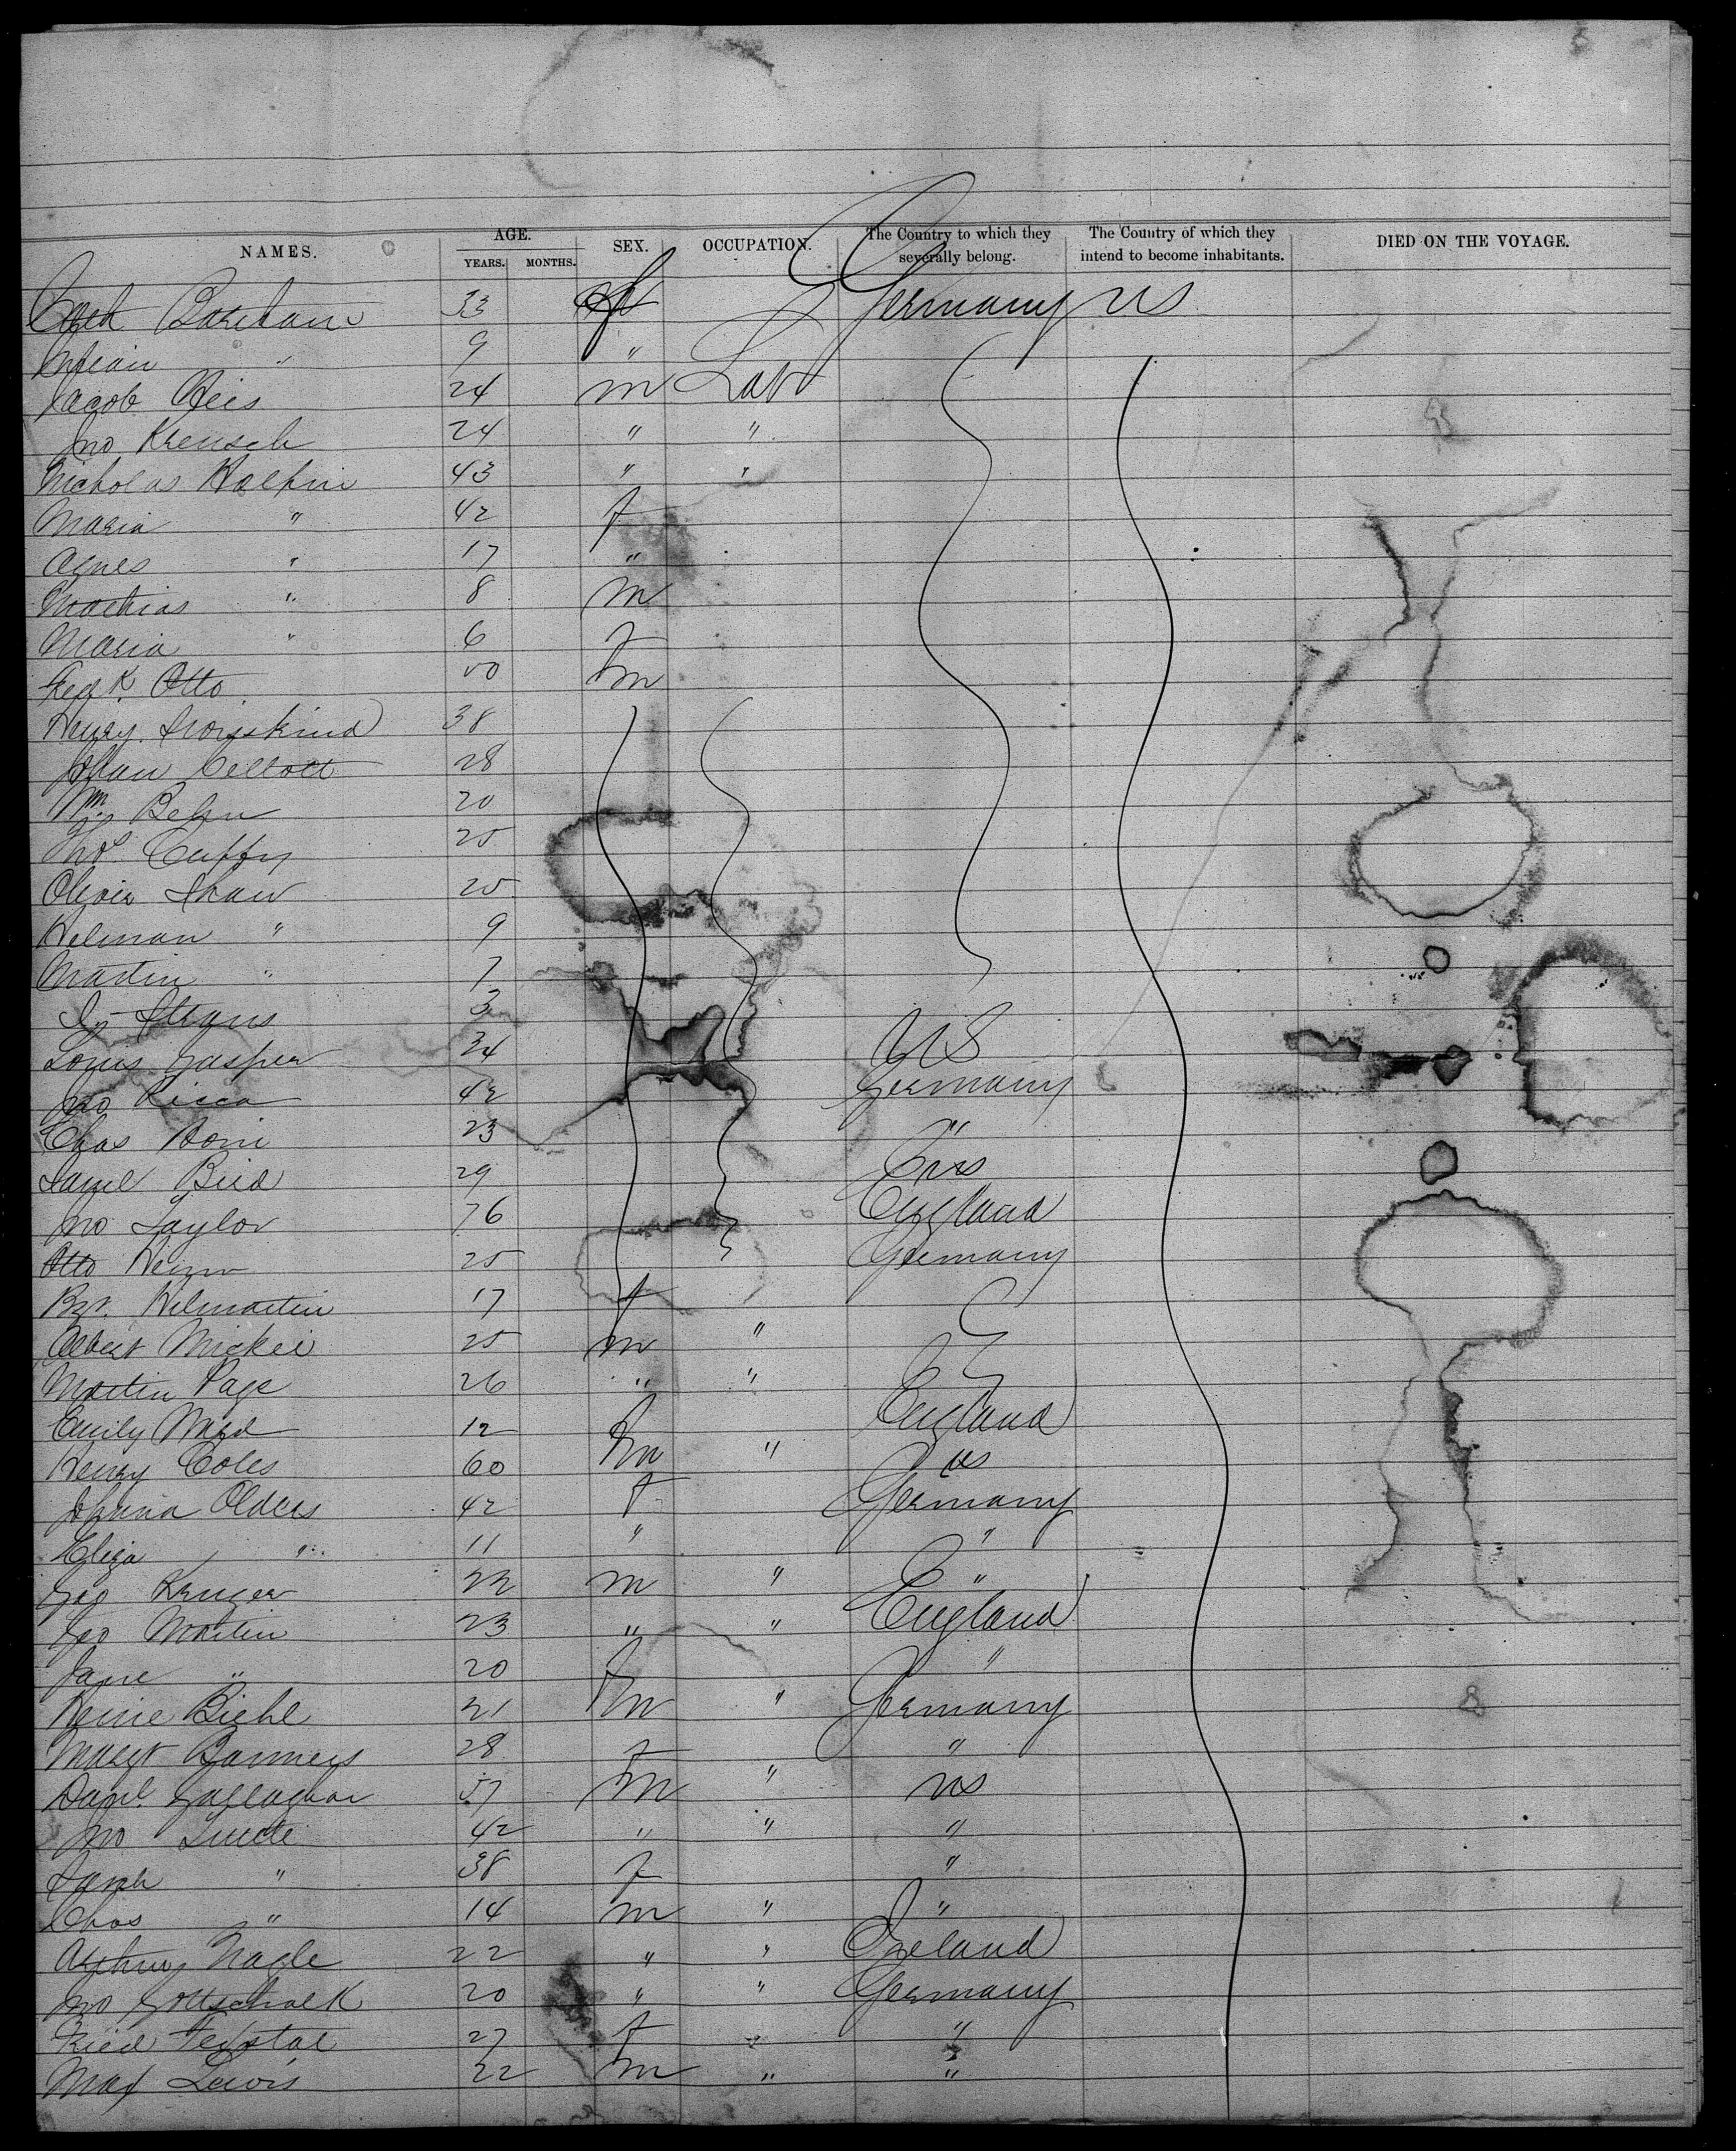 NAMES. AGE. YEARS. MONTHS. SEX. OCCUPATION. The Country to which they severally belong. The Country of which they intend to become inhabitants. DIED ON THE VOYAGE.
33 f Germany US
" 9 "
Jacob Reis 24 m Lab
Jno Kreusch 24 " "
Nicholas Halfin 43 " "
Maria " 42 f
Agnes " 17 "
Mathias " 8 m
Maria " 6 f
Fredk Otto 50 m
Henry 38
28
Wm Behn 20
Thos Cuffy 25
Shaw 25
Helman " 9
Martin " 7
3
Louis Gasper 34 US
Jno Ricca 42 Germany
Chas 23 "
Saml Bird 29 US
Jno Taylor 76 England
Otto 25 Germany
Kilmartin 17 f
Albert Mickei 25 m "
Martin Page 26 " "
Emily Ward 12 f England
Henry Coles 60 m " US
Johanna Olders 42 f Germany
Eliza " 11 " "
Geo Kruger 22 m " "
Geo Martin 23 " " England
Jane " 20 f "
Heinr Biehl 21 m " Germany
Margt Bammers 28 f "
Danl Gallaghar 37 m " US
Jno 42 " " "
Sarah " 38 f "
Chas " 14 m " "
Arthur Nagle 22 " " Ireland
Jno Gottschalk 20 " " Germany
Fried 27 f " "
Max Lewis 22 m " "